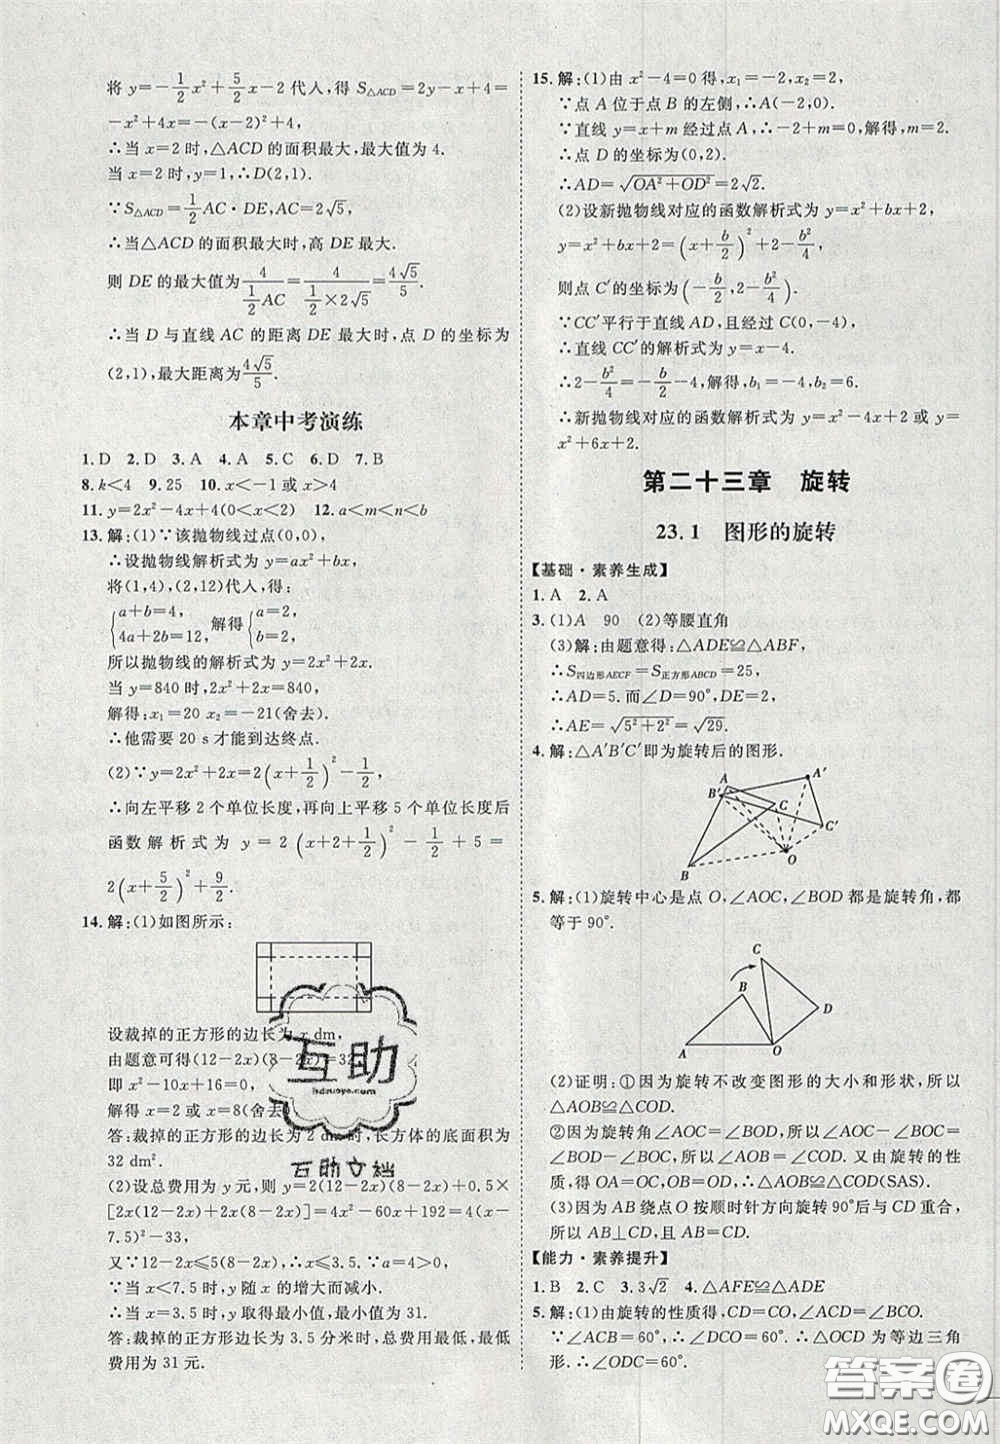 将 y=-1/2x²+5/2x-2 代入,得 S△ACD=2y-x+4=
-x²+4x=-(x-2)²+4,
∴当 x=2 时,△ACD 的面积最大,最大值为 4.
当 x=2 时,y=1,∴D(2,1).
∵S△ACD=1/2AC·DE,AC=2√5,
∴当△ACD 的面积最大时,高 DE 最大.
则 DE 的最大值为 4/(1/2AC)=4/(1/2×2√5)=4√5/5.
∴当 D 与直线 AC 的距离 DE 最大时,点 D 的坐标为
(2,1),最大距离为4√5/5.
本章中考演练
1.D 2.D 3.A 4.A 5.C 6.D 7.B
8.k<4 9.25 10.x<-1 或 x>4
11.y=2x²-4x+4(0<x<2) 12.a<m<n<b
13.解:(1)∵该抛物线过点(0,0),
∴设抛物线解析式为 y=ax²+bx,
将(1,4),(2,12)代入,得:
{a+b=4, 4a+2b=12, 解得{a=2, b=2,
所以抛物线的解析式为 y=2x²+2x.
当 y=840 时,2x²+2x=840,
解得:x₁=20 x₂=-21(舍去).
∴他需要 20 s才能到达终点.
(2)∵y=2x²+2x=2(x+1/2)²-1/2,
∴向左平移 2 个单位长度,再向上平移 5 个单位长度后
函数解析式为 y=2(x+2+1/2)²-1/2+5=
2(x+5/2)²+9/2.
14.解:(1)如图所示:
设裁掉的正方形的边长为 x dm,
由题意可得(12-2x)(8-2x)=32,
即 x²-10x+16=0,
解得 x=2 或 x=8(舍去)
答:裁掉的正方形的边长为 2 dm,长方体的底面积为
32 dm².
(2)设总费用为 y 元,则 y=2(12-2x)(8-2x)+0.5×
[2x(12-2x)+2x(8-2x)]=4x²-60x+192=4(x-
7.5)²-33,
又∵12-2x≤5(8-2x),∴x≤3.5,∵a=4>0,
∴当 x<7.5 时,y 随 x 的增大而减小.
∴当 x=3.5 时,y取得最小值,最小值为 31.
答:裁掉的正方形边长为 3.5 分米时,总费用最低,最低
费用为 31 元.
15.解:(1)由 x²-4=0 得,x₁=-2,x₂=2,
∵点 A 位于点 B 的左侧,∴A(-2,0).
∵直线 y=x+m 经过点 A,∴-2+m=0,解得,m=2.
∴点 D 的坐标为(0,2).
∴AD=√(OA²+OD²)=2√2.
(2)设新抛物线对应的函数解析式为 y=x²+bx+2,
y=x²+bx+2=(x+b/2)²+2-b²/4,
则点 C′的坐标为(-b/2,2-b²/4).
∵CC′平行于直线 AD,且经过 C(0,-4),
∴直线 CC′的解析式为 y=x-4.
∴2-b²/4=-b/2-4,解得,b₁=-4,b₂=6.
∴新抛物线对应的函数解析式为 y=x²-4x+2 或 y=
x²+6x+2.
第二十三章 旋转
23.1 图形的旋转
【基础·素养生成】
1.A 2.A
3.(1)A 90 (2)等腰直角
(3)解:由题意得:△ADE≌△ABF,
∴S四边形AECF=S正方形ABCD=25,
∴AD=5.而∠D=90°,DE=2,
∴AE=√(5²+2²)=√29.
4.解:△A′B′C′即为旋转后的图形.
A′
A
B′
C
C′
O
B
5.解:(1)旋转中心是点 O,∠AOC,∠BOD 都是旋转角,都
等于 90°.
C
B
D
A
O
(2)证明:①因为旋转不改变图形的大小和形状,所以
△AOB≌△COD.
②因为旋转角∠AOC=∠BOD,所以∠AOC-∠BOC=
∠BOD-∠BOC,即∠AOB=∠COD.又由旋转的性
质,得 OA=OC,OB=OD,∴△AOB≌△COD(SAS).
(3)因为 AB 绕点 O 按顺时针方向旋转 90°后与 CD 重合,
所以 AB⊥CD,AB=CD.
【能力·素养提升】
1.B 2.C 3.3√2 4.△AFE≌△ADE
5.解:(1)由旋转的性质得,CD=CO,∠ACD=∠BCO.
∵∠ACB=60°,∴∠DCO=60°,∴△OCD 为等边三角
形,∴∠ODC=60°.
互助
hdzuoye.com
互助文档
答案圈
MXQE.COM